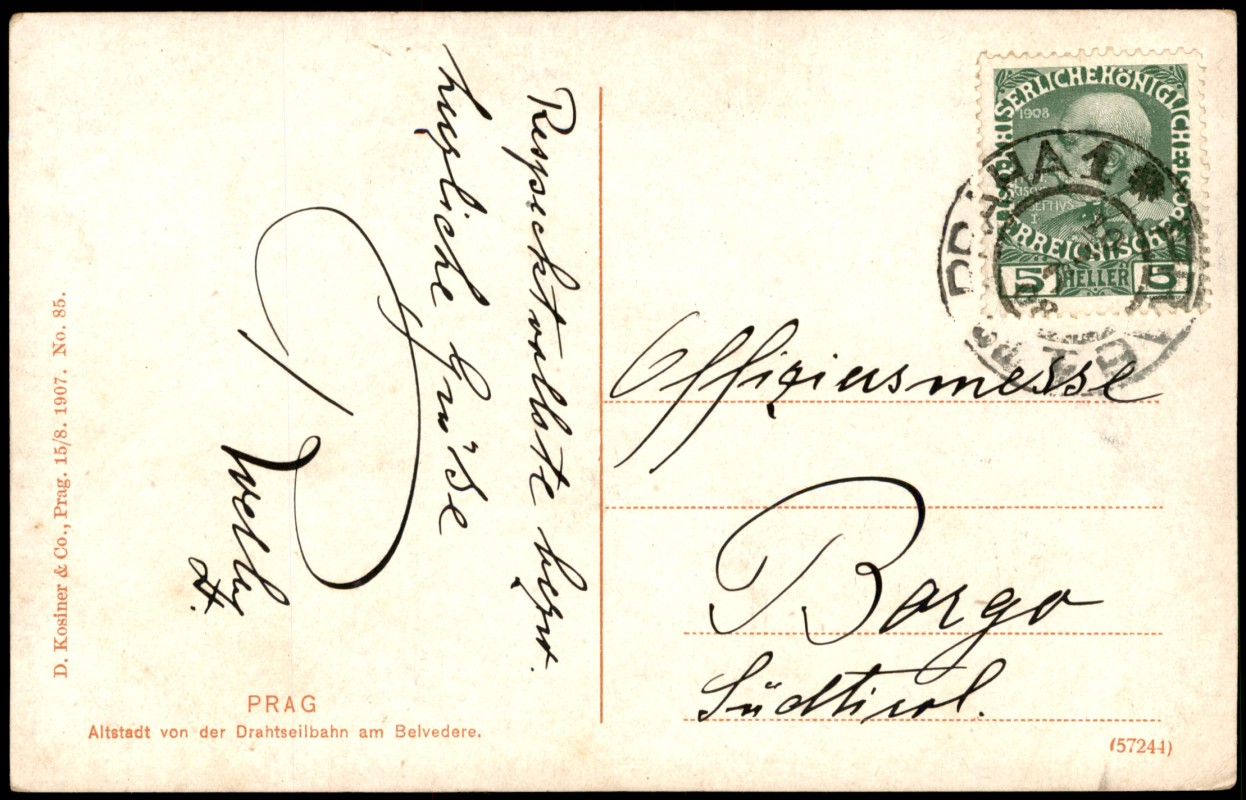 Respektvollste bezw.
herzliche Grüsse
D. Kosiner & Co., Prag. 15/8. 1907. No. 85.
PRAG
Altstadt von der Drahtseilbahn am Belvedere.
KAISERLICHE KÖNIGLICHE ÖSTERREICHISCHE POST
1908
5 HELLER 5
PRAHA 1
PRAG
Offiziersmesse
Borgo
Südtirol.
(57244)